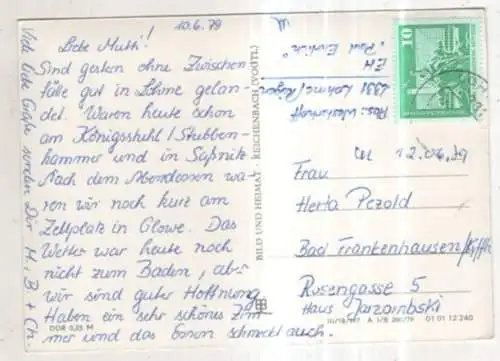 10.6.79
Liebe Mutti!
Sind gestern ohne Zwischen-
fälle gut in Lohme gelan-
det. Waren heute schon
am Königsstuhl / Stubben-
kammer und in Saßnitz.
Nach dem Abendessen wa-
ren wir noch kurz am
Zeltplatz in Glowe. Das
Wetter war heute noch
nicht zum Baden, aber
wir sind guter Hoffnung.
Haben ein sehr schönes Zim-
mer und das Essen schmeckt auch.
Viele liebe Grüße senden Dir H., B. + Ch.
DDR 0,25 M
BILD UND HEIMAT · REICHENBACH (VOGTL)
EH
"Paul Ehrlich"
2331 Lohme/Rügen
10
12.06.79
Frau
Herta Pezold
Bad Frankenhausen/Kyffh
Rosengasse 5
Haus Jarzombski
III/18/197 A 1/B 200/79 01 01 12 240